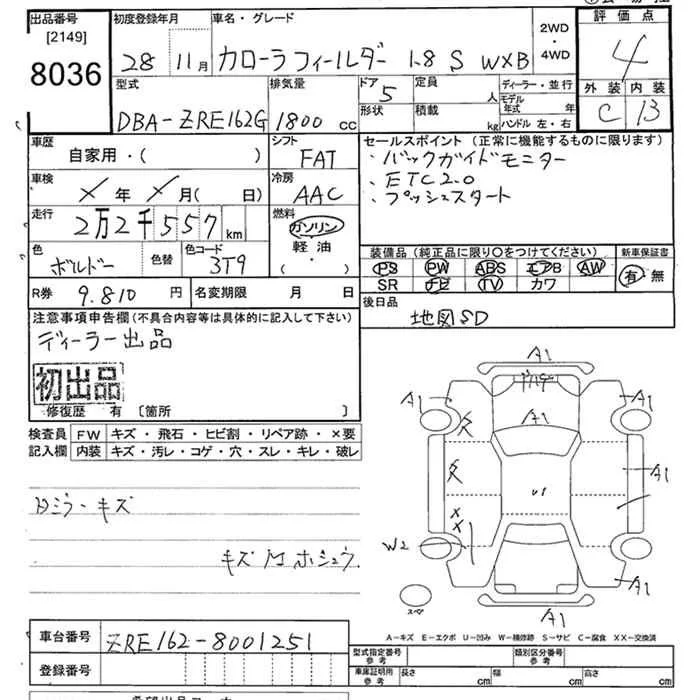 出品番号 初度登録年月 車名・グレード 2WD・4WD 評価点
[2149]
8036 28 11月 カローラフィールダー 1.8 S W×B 4
型式 排気量 ドア 5 定員 人 ディーラー・並行 外装 内装
DBA-ZRE162G 1800 cc 形状 積載 kg モデル年式 年 C B
ハンドル 左・右
車歴 シフト セールスポイント (正常に機能するものに限ります)
自家用・( ) FAT ・バックガイドモニター
車検 冷房 ・ETC2.0
× 年 × 月( 日) AAC ・プッシュスタート
走行 燃料
2万2千557 km ガソリン
軽油
( ・ )
色 色替 色コード 装備品 (純正品に限り〇をつけてください) 新車保証書
ボルドー 3T9 PS PW ABS エアB AW 有・無
SR ナビ TV カワ
R券 9.810 円 名変期限 月 日 後日品
地図SD
注意事項申告欄(不具合内容等は具体的に記入して下さい)
ディーラー出品
初出品
修復歴 有 [箇所 ]
検査員 FW キズ・飛石・ヒビ割・リペア跡・×要
記入欄 内装 キズ・汚レ・コゲ・穴・スレ・キレ・破レ
A1
A1 A1
A1
A1
キズ
W2
A1
A1
スペ
A-キズ E-エクボ U-凹み W-補修跡 S-サビ C-腐食 XX-交換済
車台番号 ZRE162-8001251 型式指定番号 参考 類別区分番号 参考
登録番号 車庫証明用 参考 長さ cm 幅 cm 高さ cm